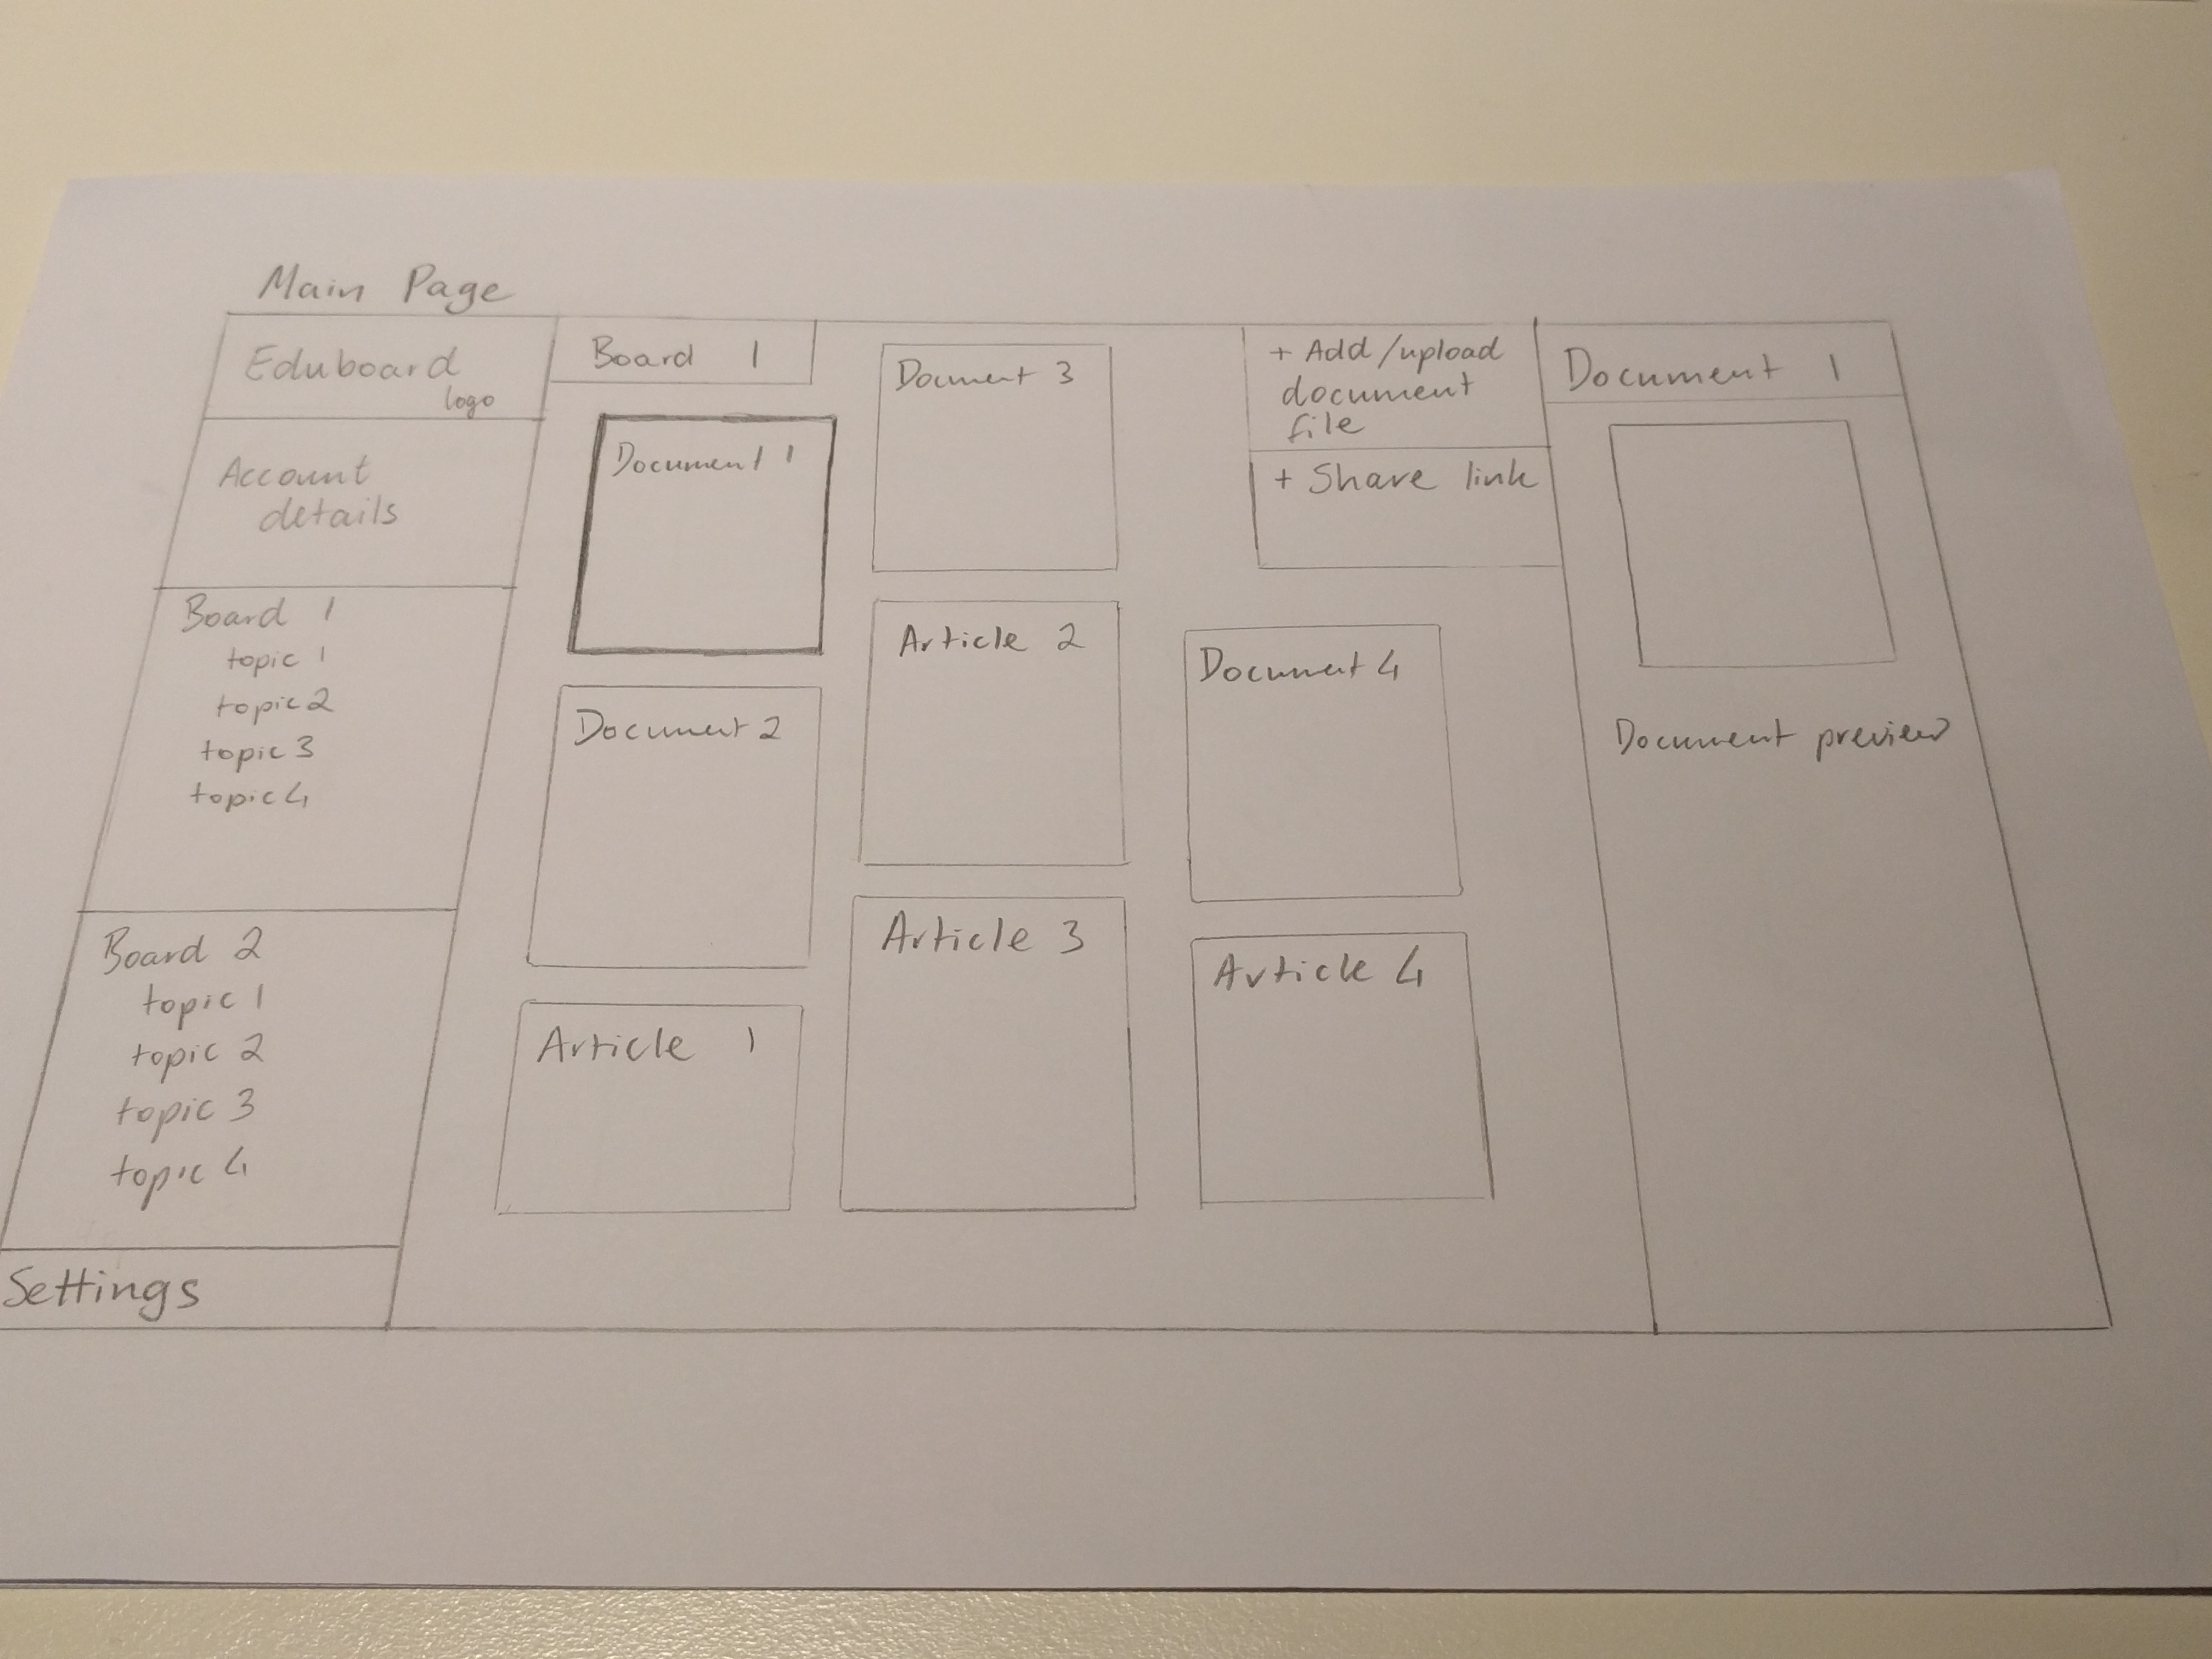 Main Page
Eduboard
logo
Account
details
Board 1
topic 1
topic 2
topic 3
topic 4
Board 2
topic 1
topic 2
topic 3
topic 4
Settings
Board 1
Document 1
Document 2
Article 1
Document 3
Article 2
Article 3
+ Add/upload
document
file
+ Share link
Document 4
Article 4
Document 1
Document preview